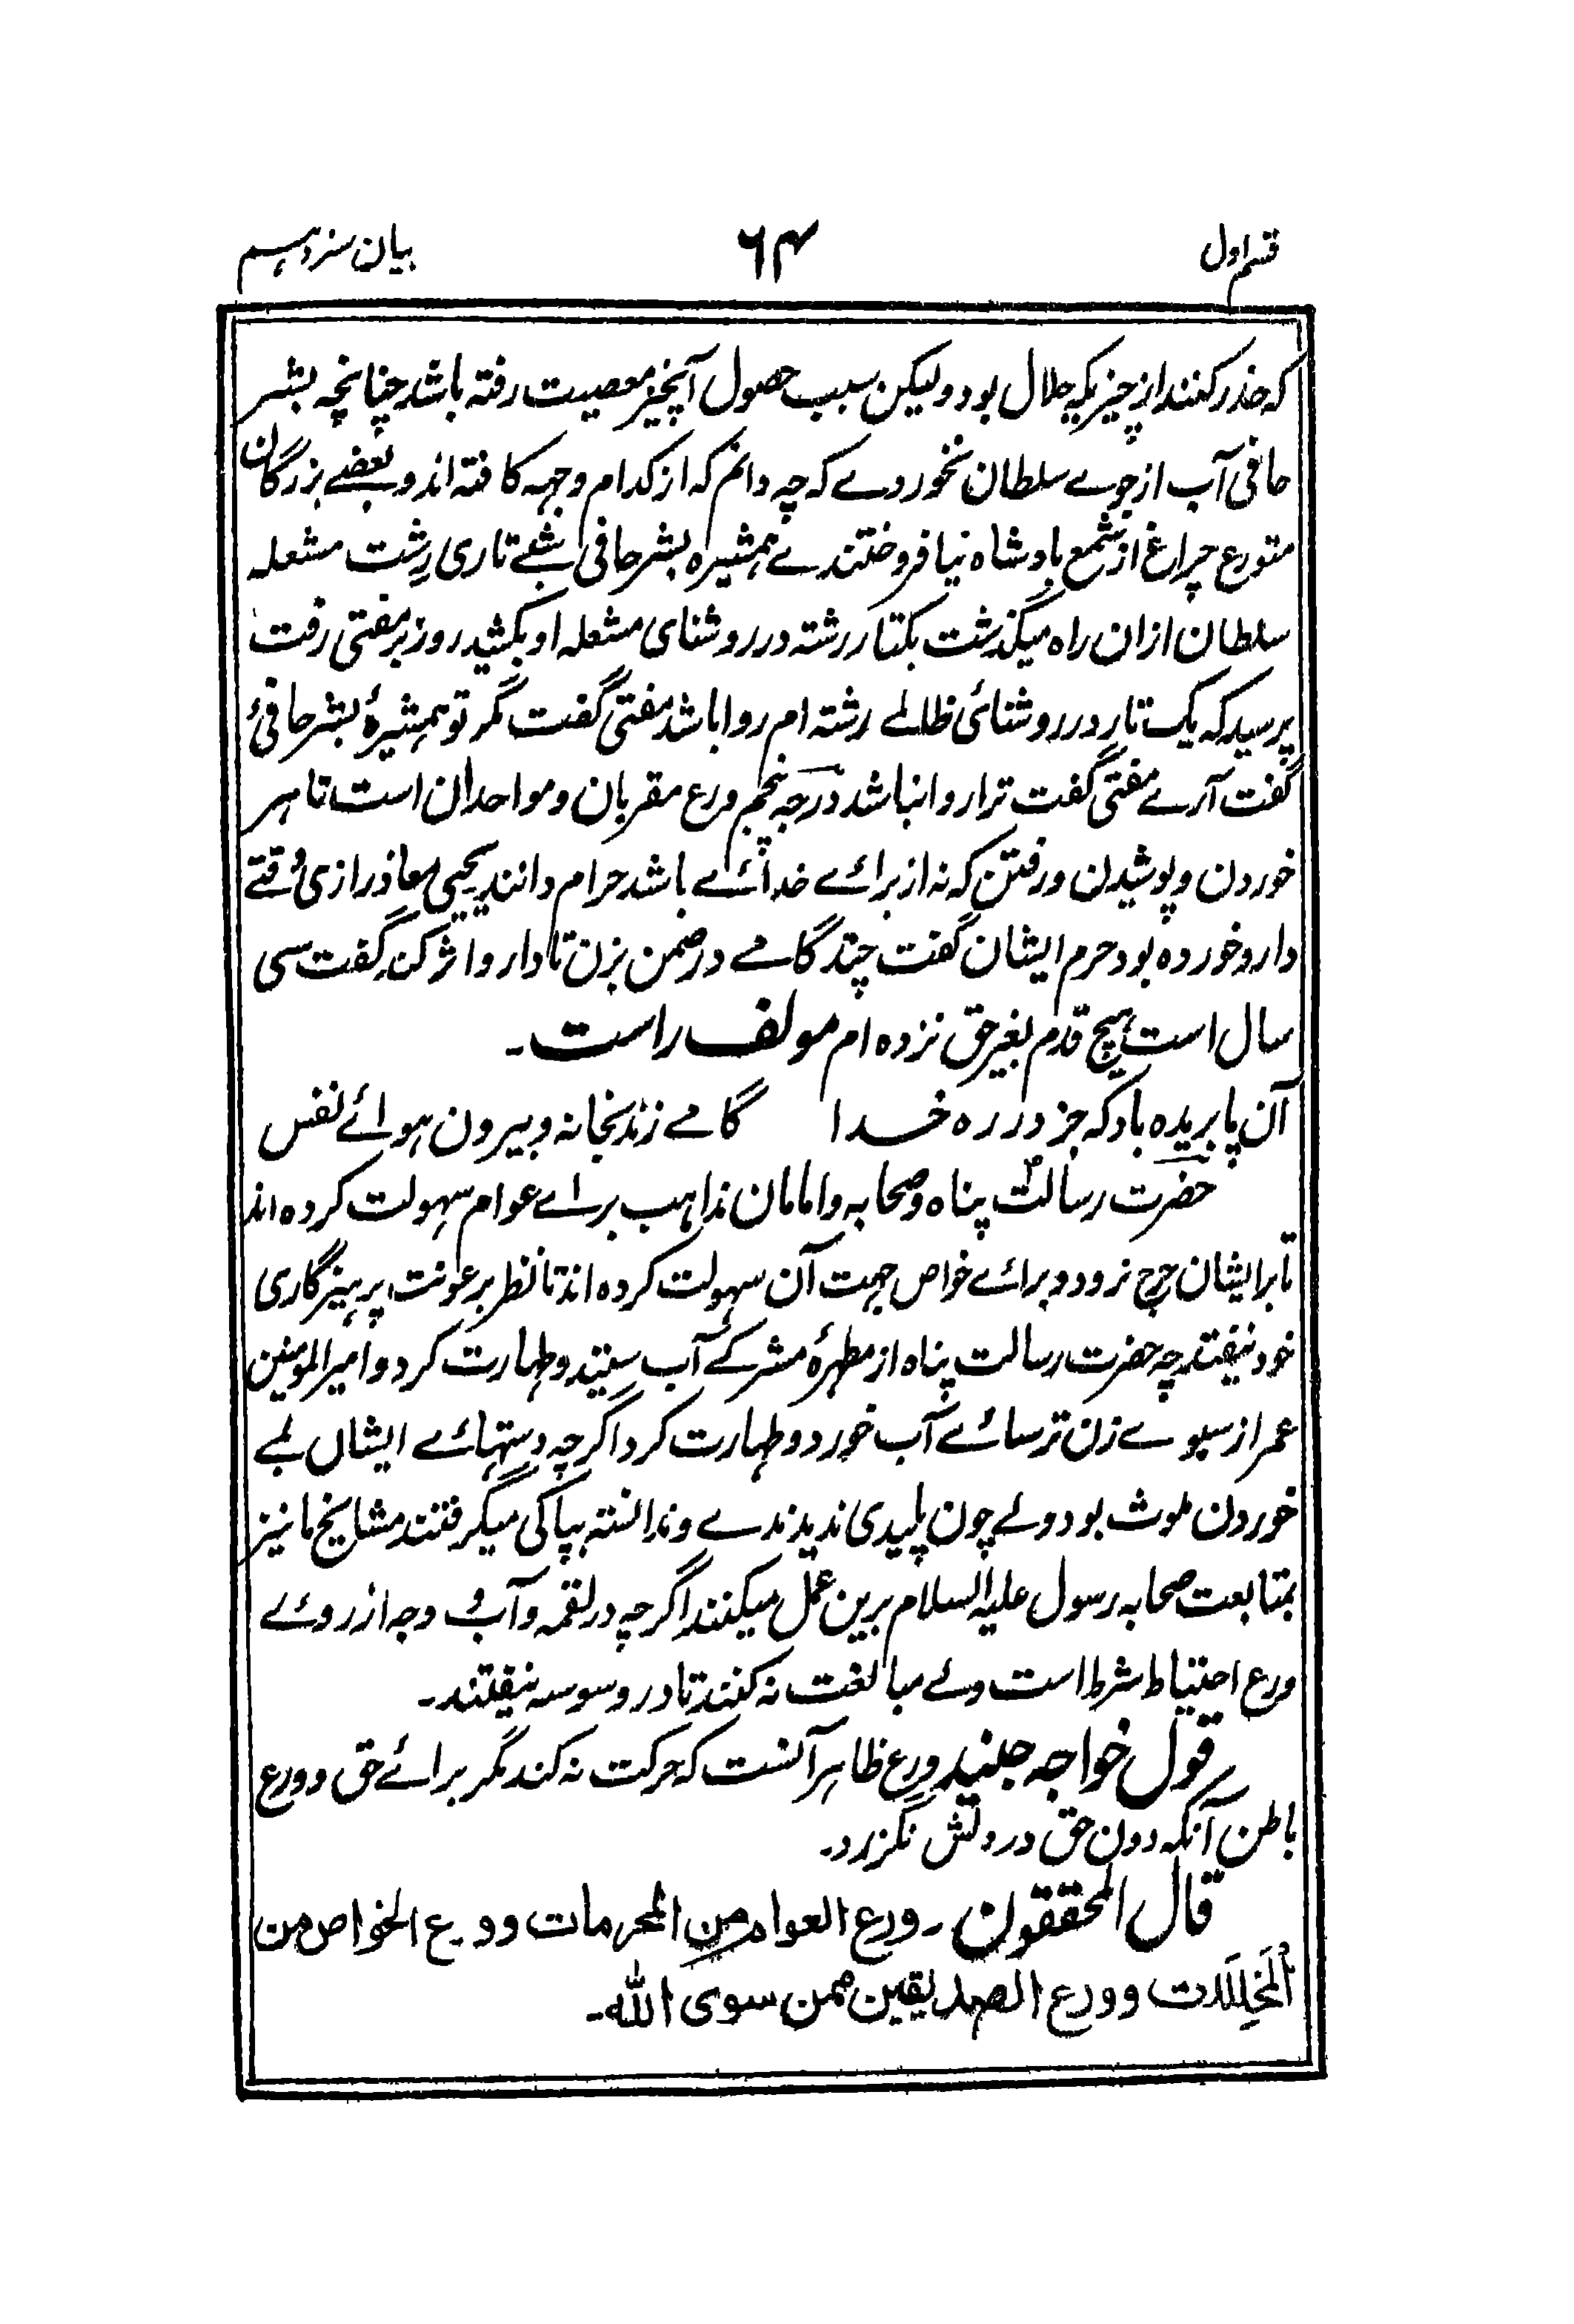 قسم اول ۶۴ بیان سزدہم
کہ حذر کنند از چیزیکہ حلال بود ولیکن سبب حصول آنچیز معصیت رفتہ باشد چنانچہ بشر
حافی آب از جوے سلطان نخوردے کہ چہ دانم کہ از کدام وجہہ کافتہ اند و بعضے بزرگان
متورع چراغ از شمع بادشاہ نیافروختندے ہمشیرہ بشر حافی شبے تاری رِشت مشعلہ
سلطان ازان راہ میگذشت یکتار رشتہ در روشنای مشعلہ او بکشید روز بر مفتی رفت
پرسید کہ یک تار در روشنائی ظالمے رشتہ ام روا باشد مفتی گفت مگر تو ہمشیرۂ بشر حافیٔ
گفت آرے مفتی گفت ترا روا نباشد درجہ پنجم ورع مقربان و مواحدان است تا ہر
خوردن و پوشیدن و رفتن کہ نہ از برائے خدائے باشد حرام دانند یحییٰ معاذ رازی وقتے
دارو خوردہ بود حرم ایشان گفت چند گامے در صحن بزن تا دارو اثر کند گفت سی
سال است ہیچ قدم بغیر حق نزدہ ام مولف راست۔
آن پا بریدہ باد کہ جز در رہ خدا گامے زند بخانہ و بیرون ہوائے نفس
حضرت رسالت پناہ و صحابہ و امامان مذاہب براے عوام سہولت کردہ اند
تا بر ایشان حرج نرود و برائے خواص جہت آن سہولت کردہ اند تا نظر بر عونت پرہیزگاری
خود نیفتد چہ حضرت رسالت پناہ از مطہرۂ مشرکے آب ستید و طہارت کرد و امیر المومنین
عمر از سبوے زن ترسائے آب خورد و طہارت کرد اگرچہ دستہائے ایشاں بمے
خوردن ملوث بود ولے چون پلیدی ندیدندے و ندانستہ بپاکی میگرفتند مشایخ ما نیز
بمتابعت صحابہ رسول علیہ السلام برین عمل میکنند اگرچہ در لقمہ و آب و وجہ از روئے
ورع احتیاط شرط است ولے مبالغت نہ کنند تا در وسوسہ نیفتند۔
قول خواجہ جنید ورع ظاہر آنست کہ حرکت نہ کند مگر برائے حق و ورع
باطن آنکہ دون حق در دلش نگزرد۔
قال المحققون ۔ ورع العوام من المحرمات وورع الخواص من
اَلمُحَلِلَات وورع الصدیقین ممن سوی الله۔